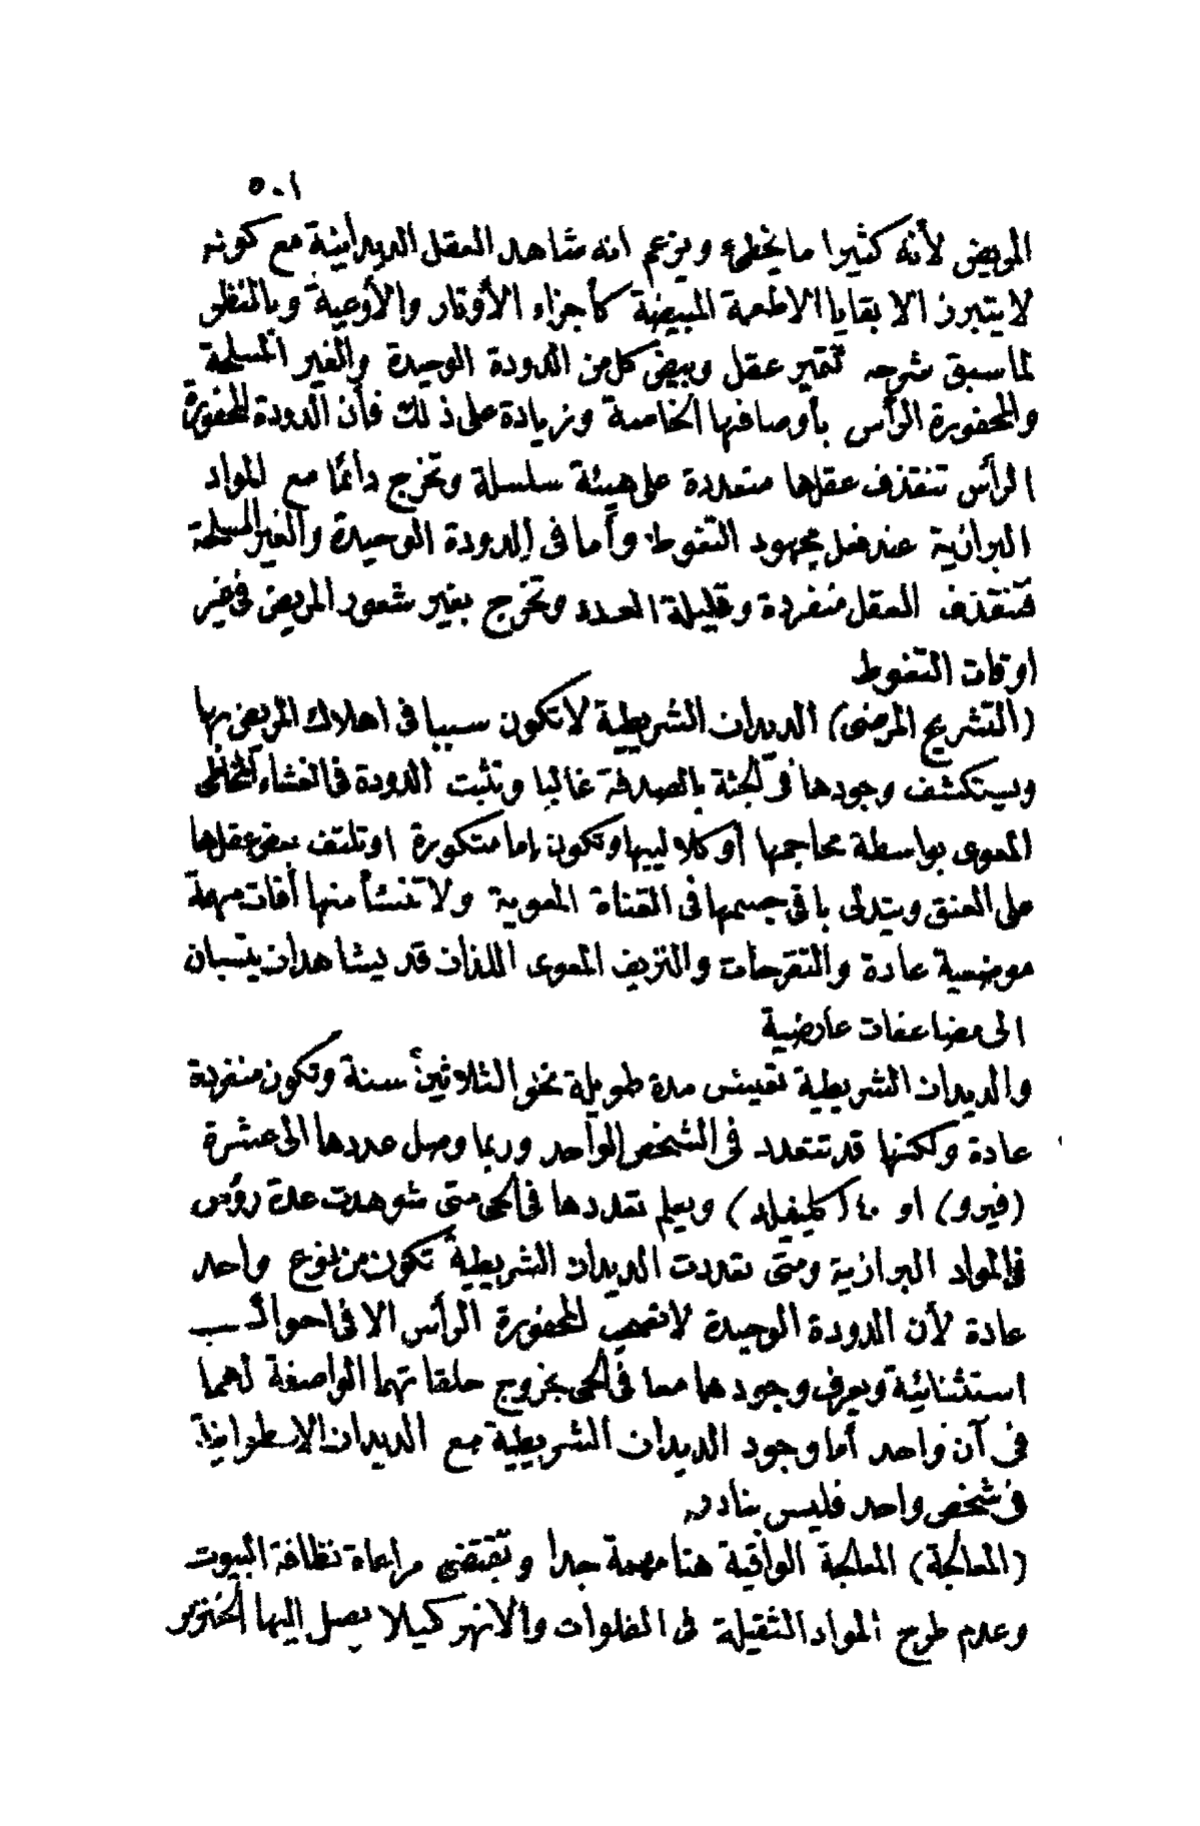 ٥٠١
المريض لأنه كثيرا ما يخطئ ويزعم انه شاهد العقل الديدانية مع كونه
لا يتبرز الا بقايا الاطعمة المبيضة كأجزاء الأوتار والأوعية وبالنظر
لما سبق شرحه تتميز عقل وبيض كل من الدودة الوحيدة والغير المسلحة
والمحفورة الرأس بأوصافها الخاصة وزيادة على ذلك فأن الدودة المحفورة
الرأس تنقذف عقلها متعددة على هيئة سلسلة وتخرج دائمًا مع المواد
البرازية عند فعل مجهود التغوط وأما فى الدودة الوحيدة والغير المسلحة
فتنقذف العقل منفردة وقليلة العدد وتخرج بغير شعور المريض فى غير
اوقات التغوط
(التشريح المرضى) الديدان الشريطية لا تكون سببا فى اهلاك المريض بها
ويستكشف وجودها فى الجثة بالصدفة غالبا وتثبت الدودة فى الغشاء المخاطى
المعوى بواسطة محاجمها أو كلاليبها وتكون إما متكورة او تلتف بعض عقلها
على العنق ويتدلى باقى جسمها فى القناة المعوية ولا تنشأ منها أفات مهمة
موضعية عادة والتقرحات والنزيف المعوى اللذان قد يشاهدان ينسبان
الى مضاعفات عارضية
والديدان الشريطية تعيش مدة طويلة نحو الثلاثين سنة وتكون منفردة
عادة ولكنها قد تتعدد فى الشخص الواحد وربما وصل عددها الى عشرة
(فيرو) او ٤٠ (كليفلد) ويعلم تعددها فى الحى متى شوهدت عدة رؤس
فى المواد البرازية ومتى تعددت الديدان الشريطية تكون من نوع واحد
عادة لأن الدودة الوحيدة لا تصحب المحفورة الرأس الا فى احوال
استثنائية ويعرف وجودهما معا فى الحى بخروج حلقاتهما الواصفة لهما
فى آن واحد أما وجود الديدان الشريطية مع الديدان الاسطوانية
فى شخص واحد فليس بنادر.
(المعالجة) المعالجة الواقية هنا مهمة جدا وتقتضى مراعاة نظافة البيوت
وعدم طرح المواد الثقيلة فى الفلوات والانهر كيلا يصل اليها الخنزير